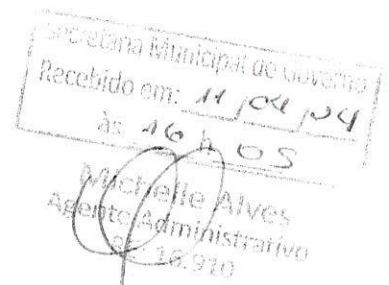 Secretaria Municipal de Governo
Recebido em: 11 / 04 / 24
às 16 h 05
Michelle Alves
Agente Administrativo
16.910